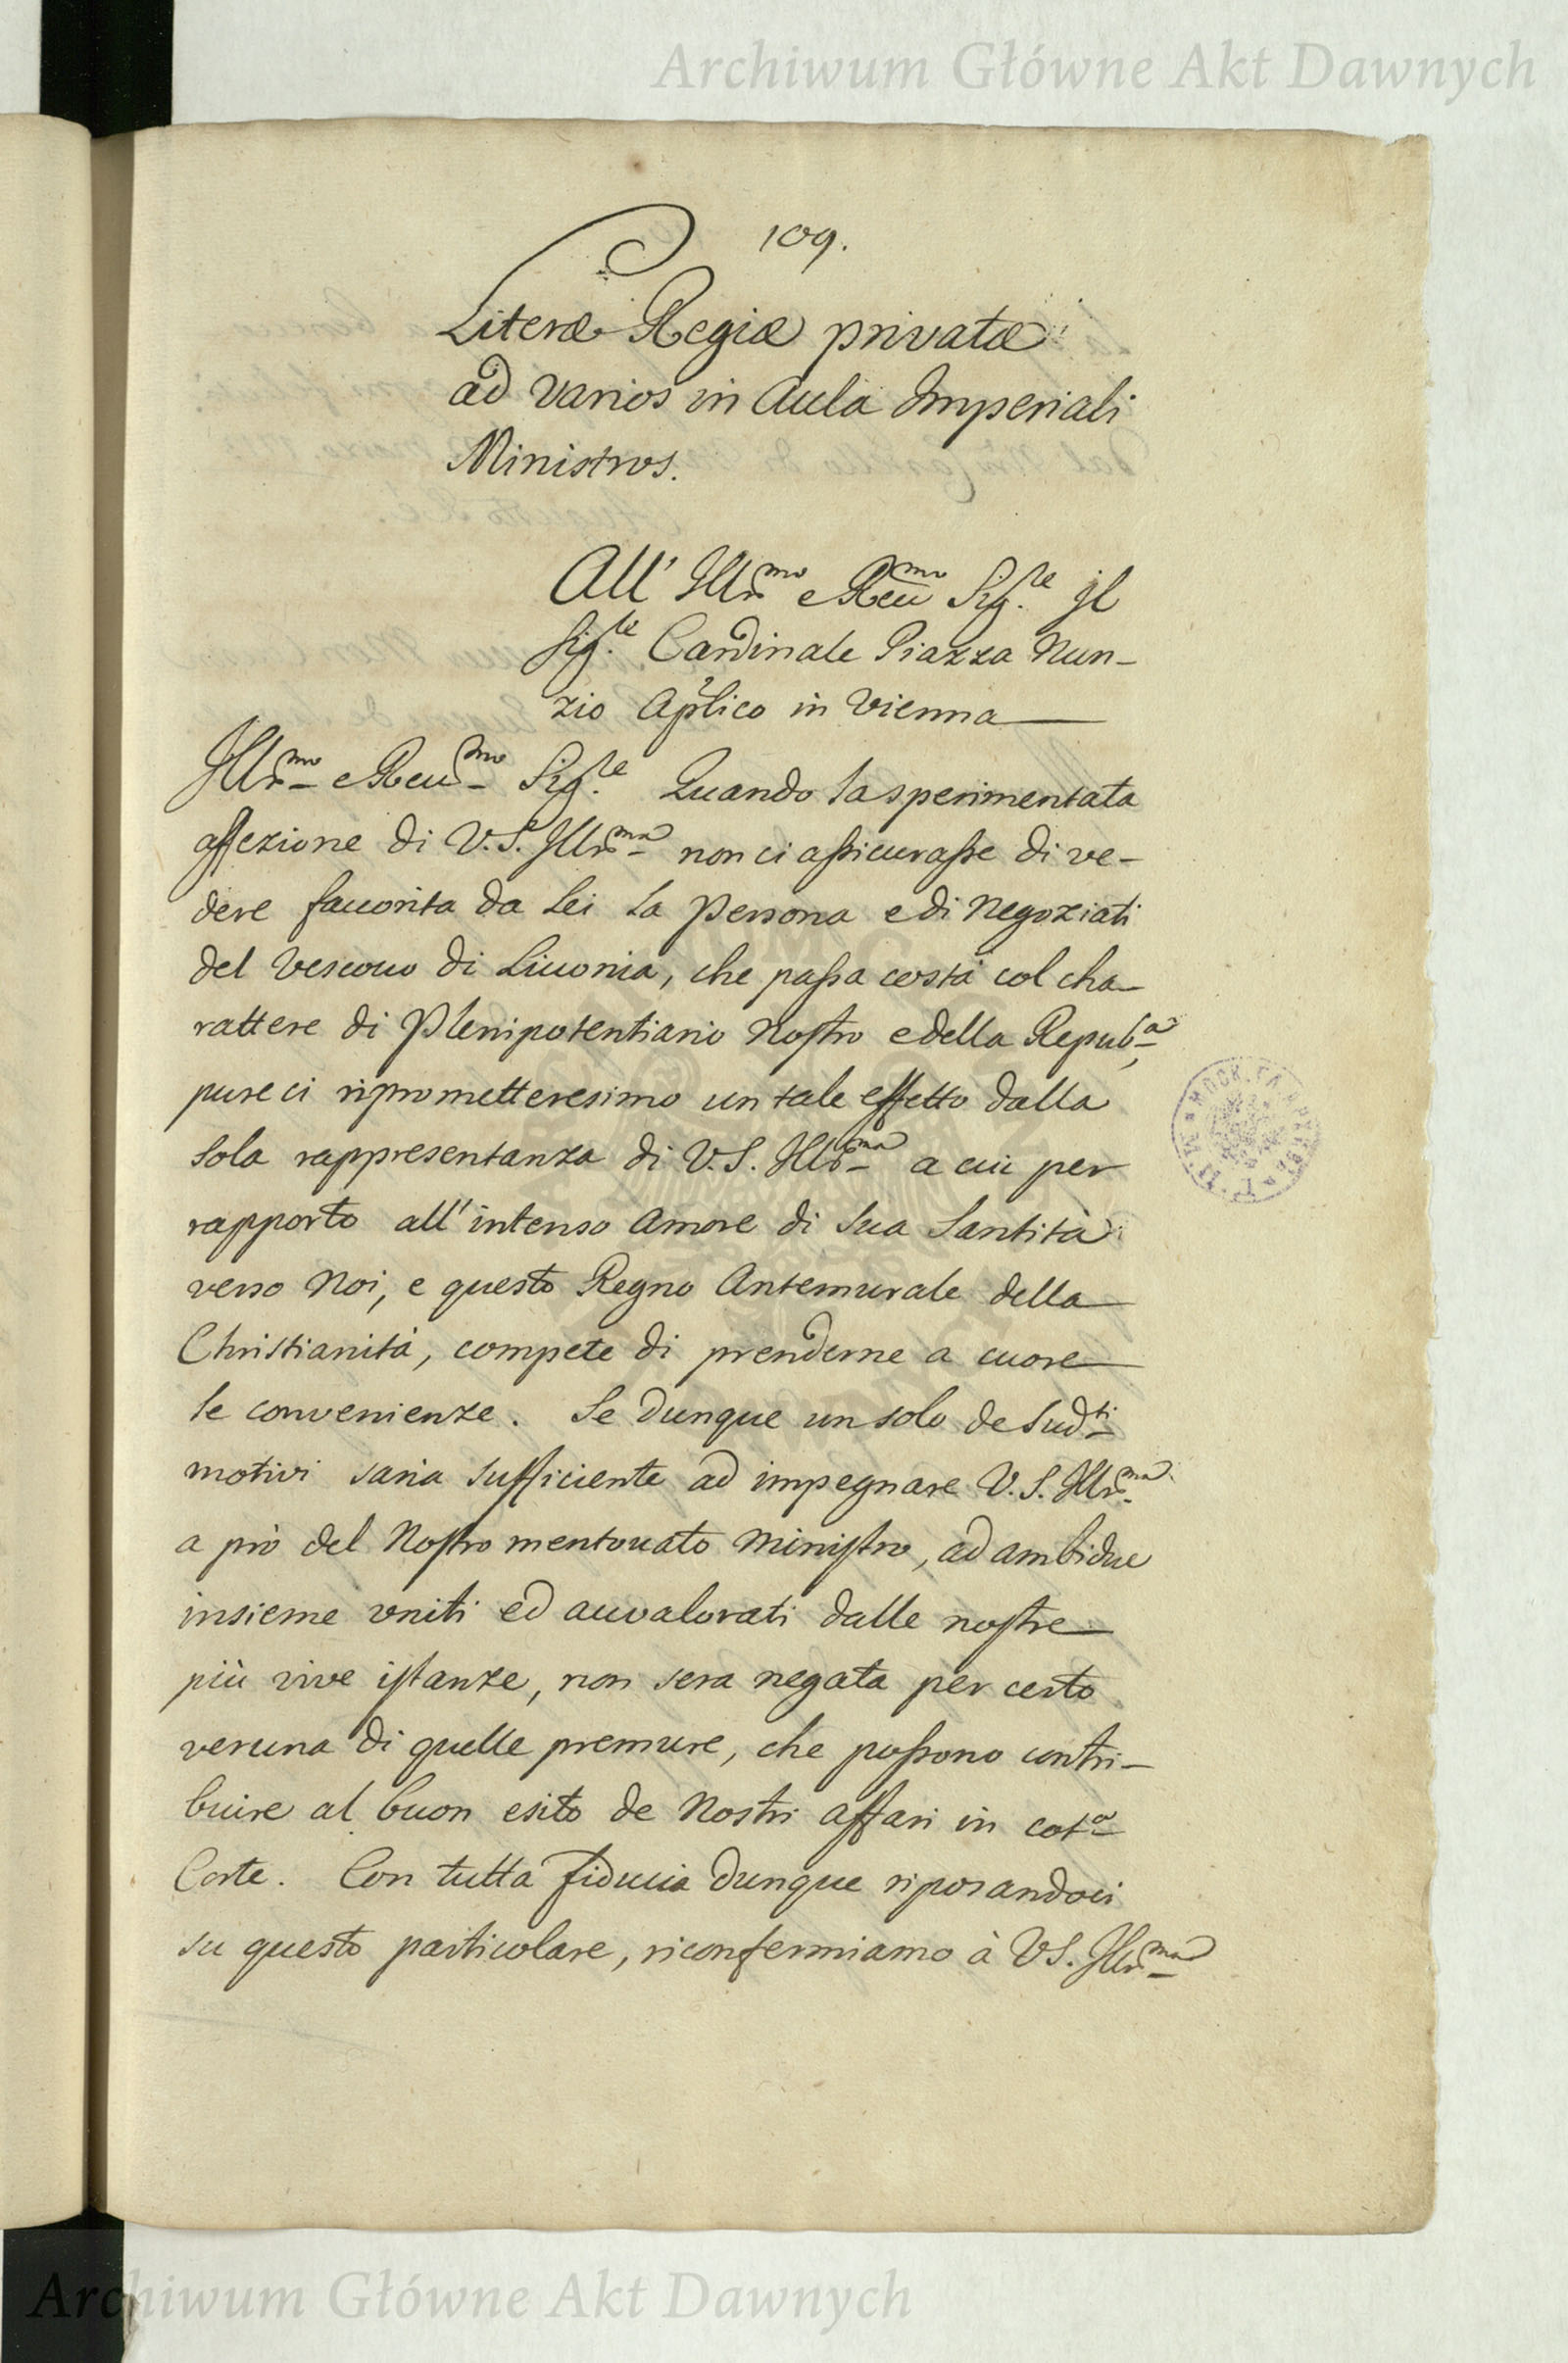 Archiwum Główne Akt Dawnych
109.
Literæ Regiæ privatæ
ad varios in Aula Imperiali
Ministros.
All' Illr̃mo e Reũmo Sig.re jl
Sig.re Cardinale Piazza Nun-
zio Aplico in Vienna
Illr̃mo e Reu̅mo Sig.re Quando la sperimentata
affezione di V.S. Illr̃ma non ci assicurasse di ve-
dere fauorita da Lei la persona e di Negoziati
del Vescouo di Liuonia, che passa costà col cha-
rattere di Plenipotentiario Nostro e della Repub.ca,
pure ci riprometteresimo un tale effetto dalla
sola rappresentanza di V.S. Illr̃ma a cui per
rapporto all' intenso amore di Sua Santità
verso Noi, e questo Regno Antemurale della
Christianità, compete di prenderne a cuore
le convenienze. Se dunque un solo de Sud.ti
motivi saria sufficiente ad impegnare V.S. Illr̃ma
a prò del Nostro mentouato Ministro, ad ambidue
insieme vniti ed auualorati dalle nostre
più vive istanze, non sera negata per certo
veruna di quelle premure, che possono contri-
buire al buon esito de Nostri affari in cot.a
Corte. Con tutta fiducia dunque riposandoci
su questo particolare, riconfermiamo à VS. Illr̃ma
Archiwum Główne Akt Dawnych